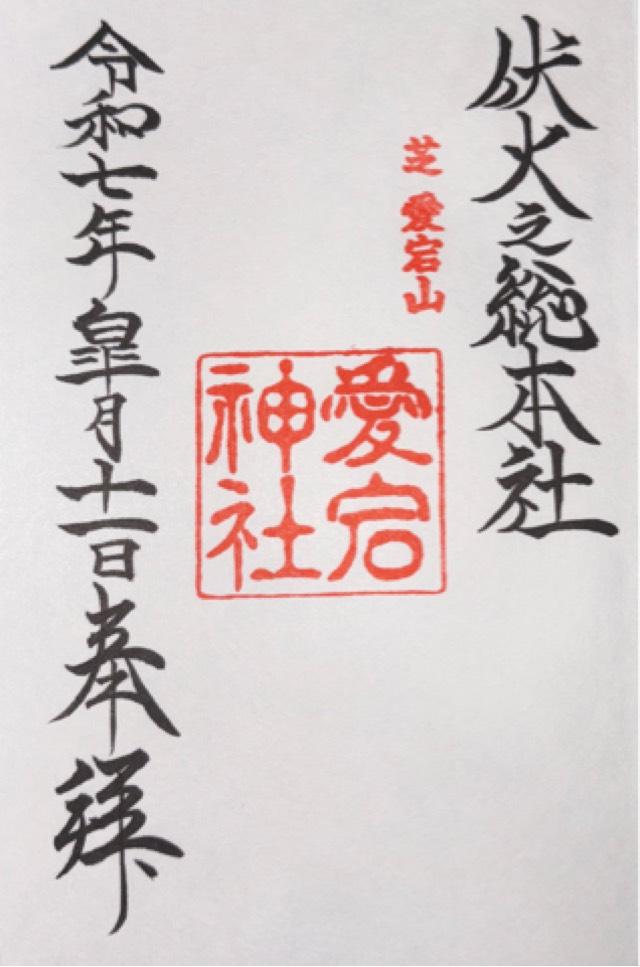 伏火之総本社
芝 愛宕山
愛宕
神社
令和七年皐月十一日奉拝